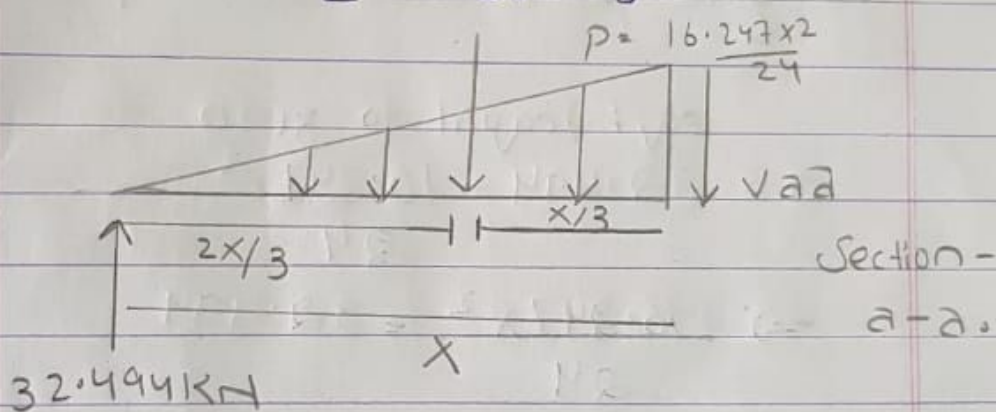 P = 16.247x2
24
Vaa
2x/3
x/3
Section-
a-a.
x
32.494KN